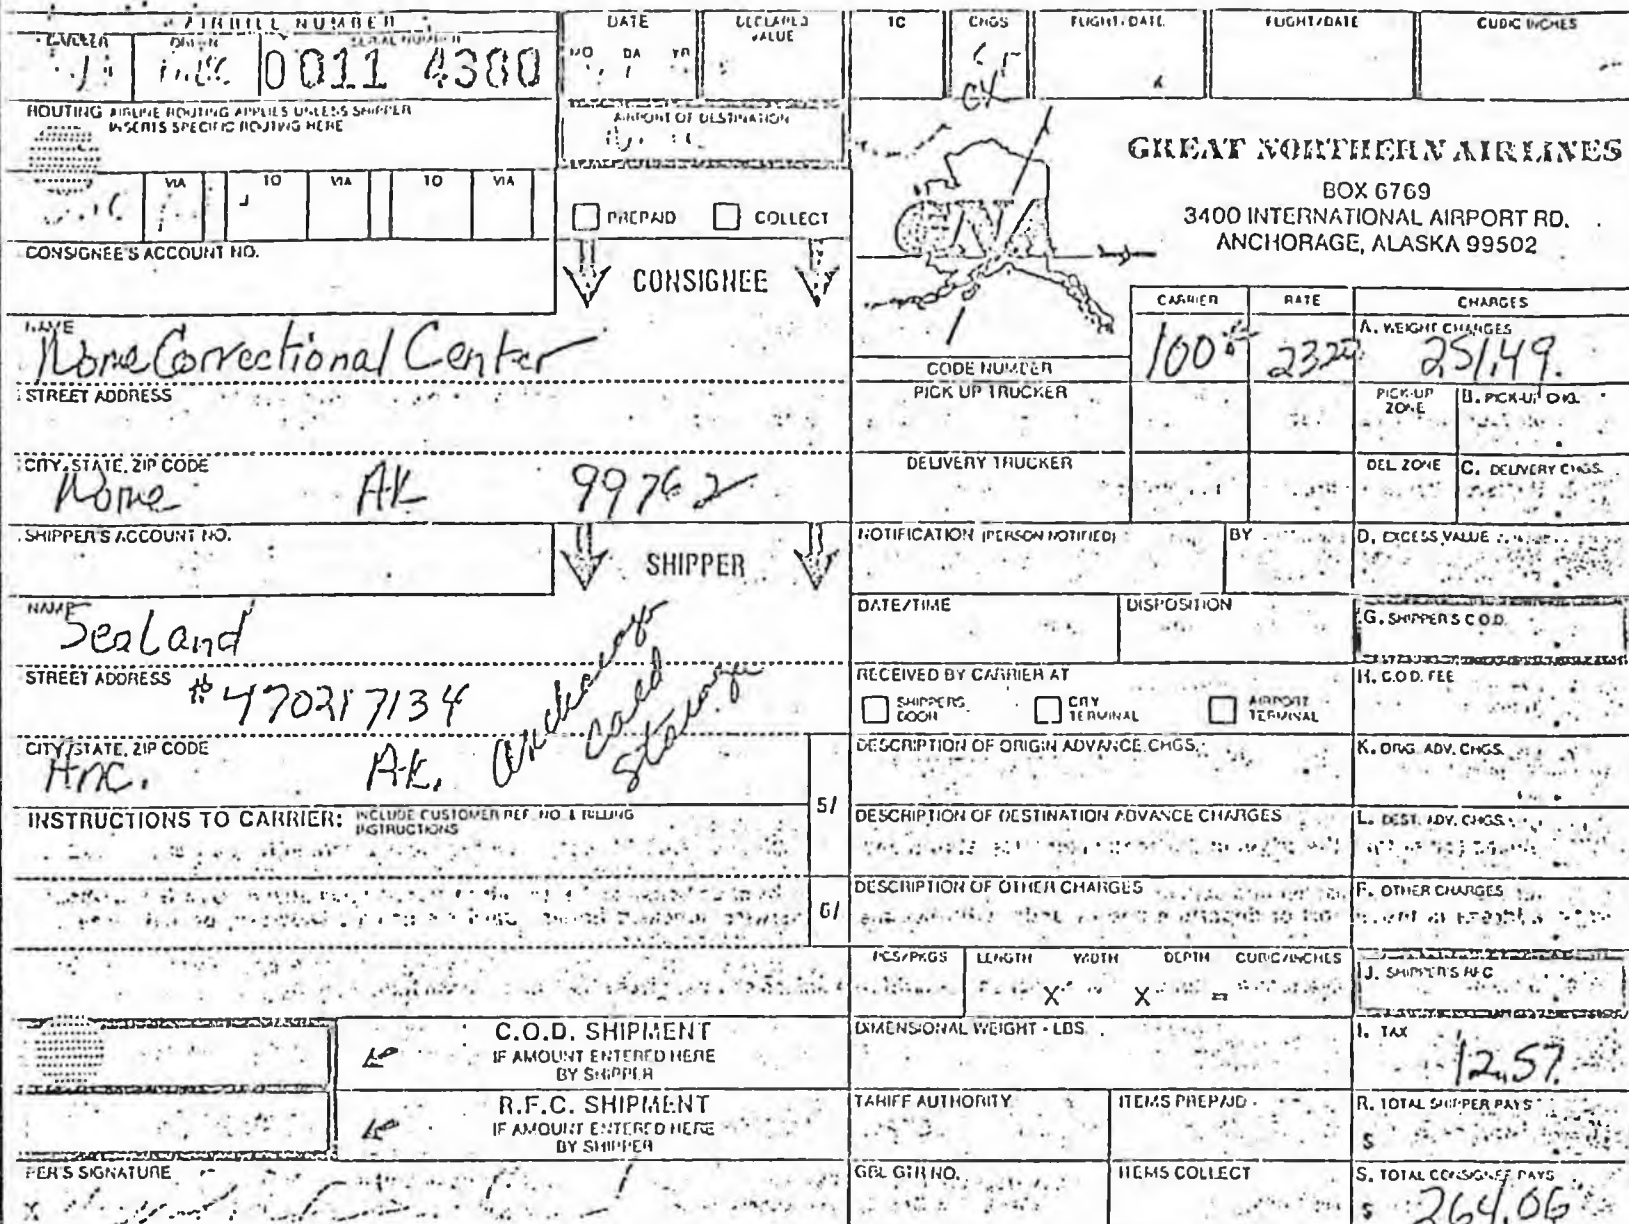 AIRBILL NUMBER
CARRIER ORIGIN SERIAL NUMBER
0011 4380
DATE
MO DA YR
DECLARED VALUE
TC
CHGS
CX
FLIGHT/DATE
FLIGHT/DATE
CUBIC INCHES
ROUTING AIRLINE ROUTING APPLIES UNLESS SHIPPER
INSERTS SPECIFIC ROUTING HERE
AIRPORT OF DESTINATION
VIA TO VIA TO VIA
PREPAID COLLECT
GREAT NORTHERN AIRLINES
BOX 6769
3400 INTERNATIONAL AIRPORT RD.
ANCHORAGE, ALASKA 99502
GNA
CONSIGNEE'S ACCOUNT NO.
CONSIGNEE
NAME
Nome Correctional Center
STREET ADDRESS
CITY, STATE, ZIP CODE
Nome AK 99762
SHIPPER'S ACCOUNT NO.
SHIPPER
NAME
SeaLand
STREET ADDRESS
#470217134
CITY/STATE, ZIP CODE
Anc. AK.
Anchorage
Cold
Storage
INSTRUCTIONS TO CARRIER: INCLUDE CUSTOMER REF. NO. & BILLING
INSTRUCTIONS
5/
6/
C.O.D. SHIPMENT
IF AMOUNT ENTERED HERE
BY SHIPPER
R.F.C. SHIPMENT
IF AMOUNT ENTERED HERE
BY SHIPPER
PER'S SIGNATURE
X
CARRIER RATE CHARGES
CODE NUMBER
100# A. WEIGHT CHARGES
251.49.
PICK UP TRUCKER
PICK-UP ZONE
B. PICK-UP CHG.
DELIVERY TRUCKER
DEL. ZONE
C. DELIVERY CHGS.
NOTIFICATION (PERSON NOTIFIED) BY
D. EXCESS VALUE
DATE/TIME DISPOSITION
G. SHIPPER'S C.O.D.
RECEIVED BY CARRIER AT
SHIPPERS DOOR
CITY TERMINAL
AIRPORT TERMINAL
H. C.O.D. FEE
DESCRIPTION OF ORIGIN ADVANCE CHGS.
K. ORIG. ADV. CHGS.
DESCRIPTION OF DESTINATION ADVANCE CHARGES
L. DEST. ADV. CHGS.
DESCRIPTION OF OTHER CHARGES
F. OTHER CHARGES
PCS/PKGS LENGTH WIDTH DEPTH CUBIC/INCHES
X X =
J. SHIPPER'S RFC
DIMENSIONAL WEIGHT - LBS.
I. TAX
12.57
TARIFF AUTHORITY ITEMS PREPAID
R. TOTAL SHIPPER PAYS
$
GBL GTR NO. ITEMS COLLECT
S. TOTAL CONSIGNEE PAYS
$ 264.06